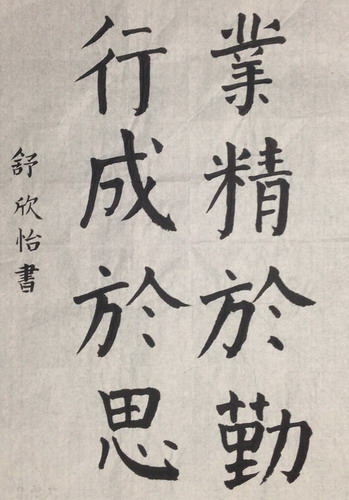 業精於勤
行成於思
舒欣怡書